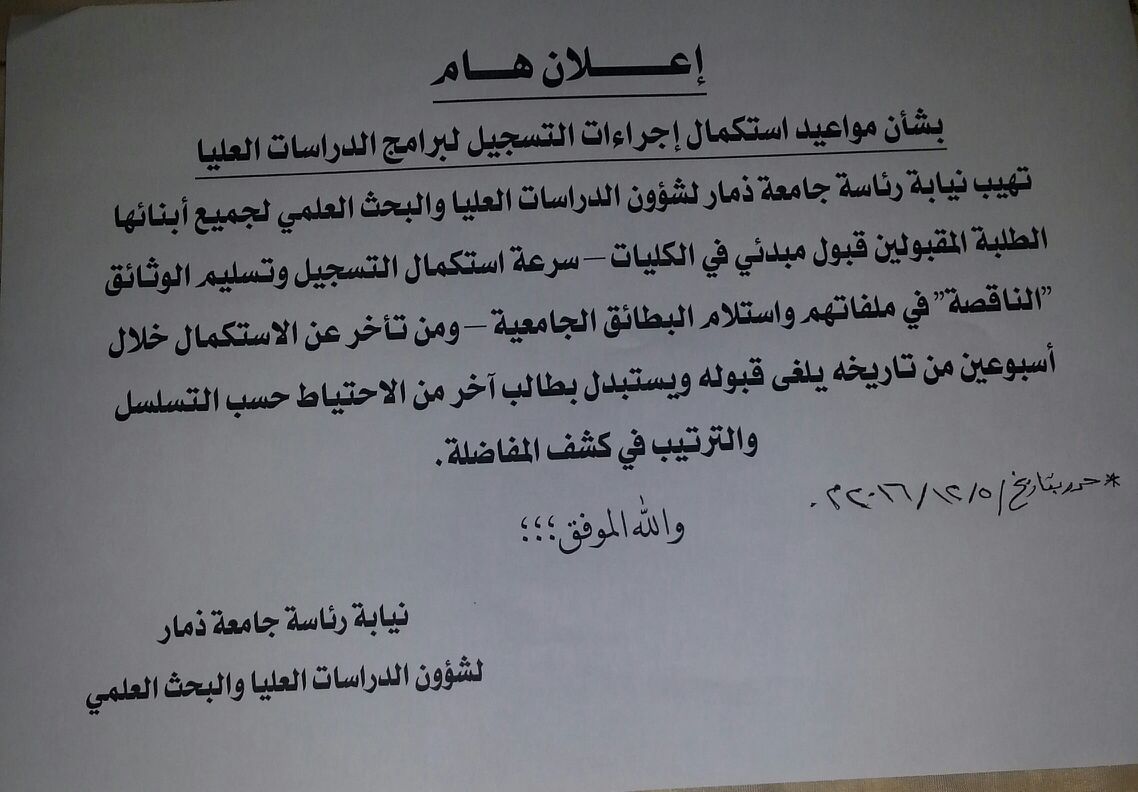 إعـــــلان هـــام
بشأن مواعيد استكمال إجراءات التسجيل لبرامج الدراسات العليا
تهيب نيابة رئاسة جامعة ذمار لشؤون الدراسات العليا والبحث العلمي لجميع أبنائها
الطلبة المقبولين قبول مبدئي في الكليات – سرعة استكمال التسجيل وتسليم الوثائق
"الناقصة" في ملفاتهم واستلام البطائق الجامعية – ومن تأخر عن الاستكمال خلال
أسبوعين من تاريخه يلغى قبوله ويستبدل بطالب آخر من الاحتياط حسب التسلسل
والترتيب في كشف المفاضلة.
* حرر بتاريخ / ٢٠١٦/١٢/٥م.
والله الموفق؛؛؛
نيابة رئاسة جامعة ذمار
لشؤون الدراسات العليا والبحث العلمي